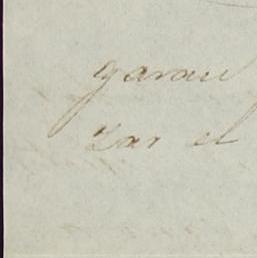 garan
zar el